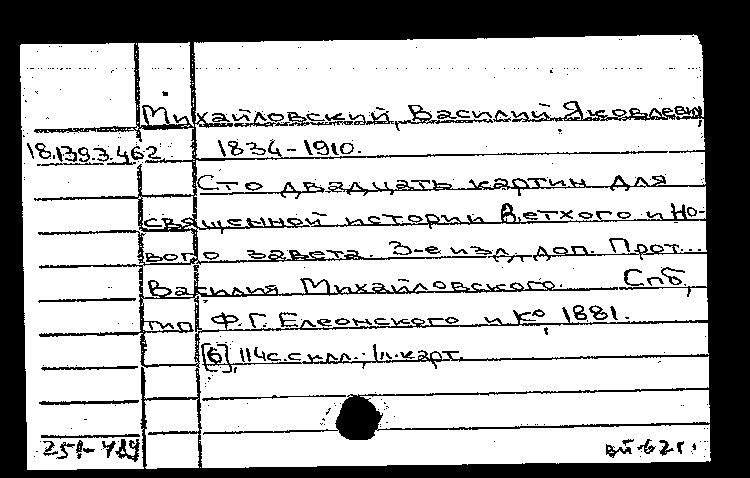 Михайловский, Василий Яковлевич,
18.139.3.462 1834-1910.
Сто двадцать картин для
священной истории Ветхого и Но-
вого завета. 3-е изд., доп. Прот...
Василия Михайловского. Спб,
тип. Ф.Г. Елеонского и Ко, 1881.
[6], 114с. с илл.; 1л. карт.
251-